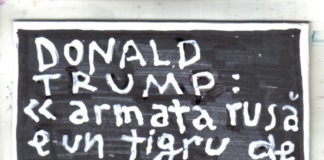 DONALD
TRUMP:
« armata rusă
e un tigru de